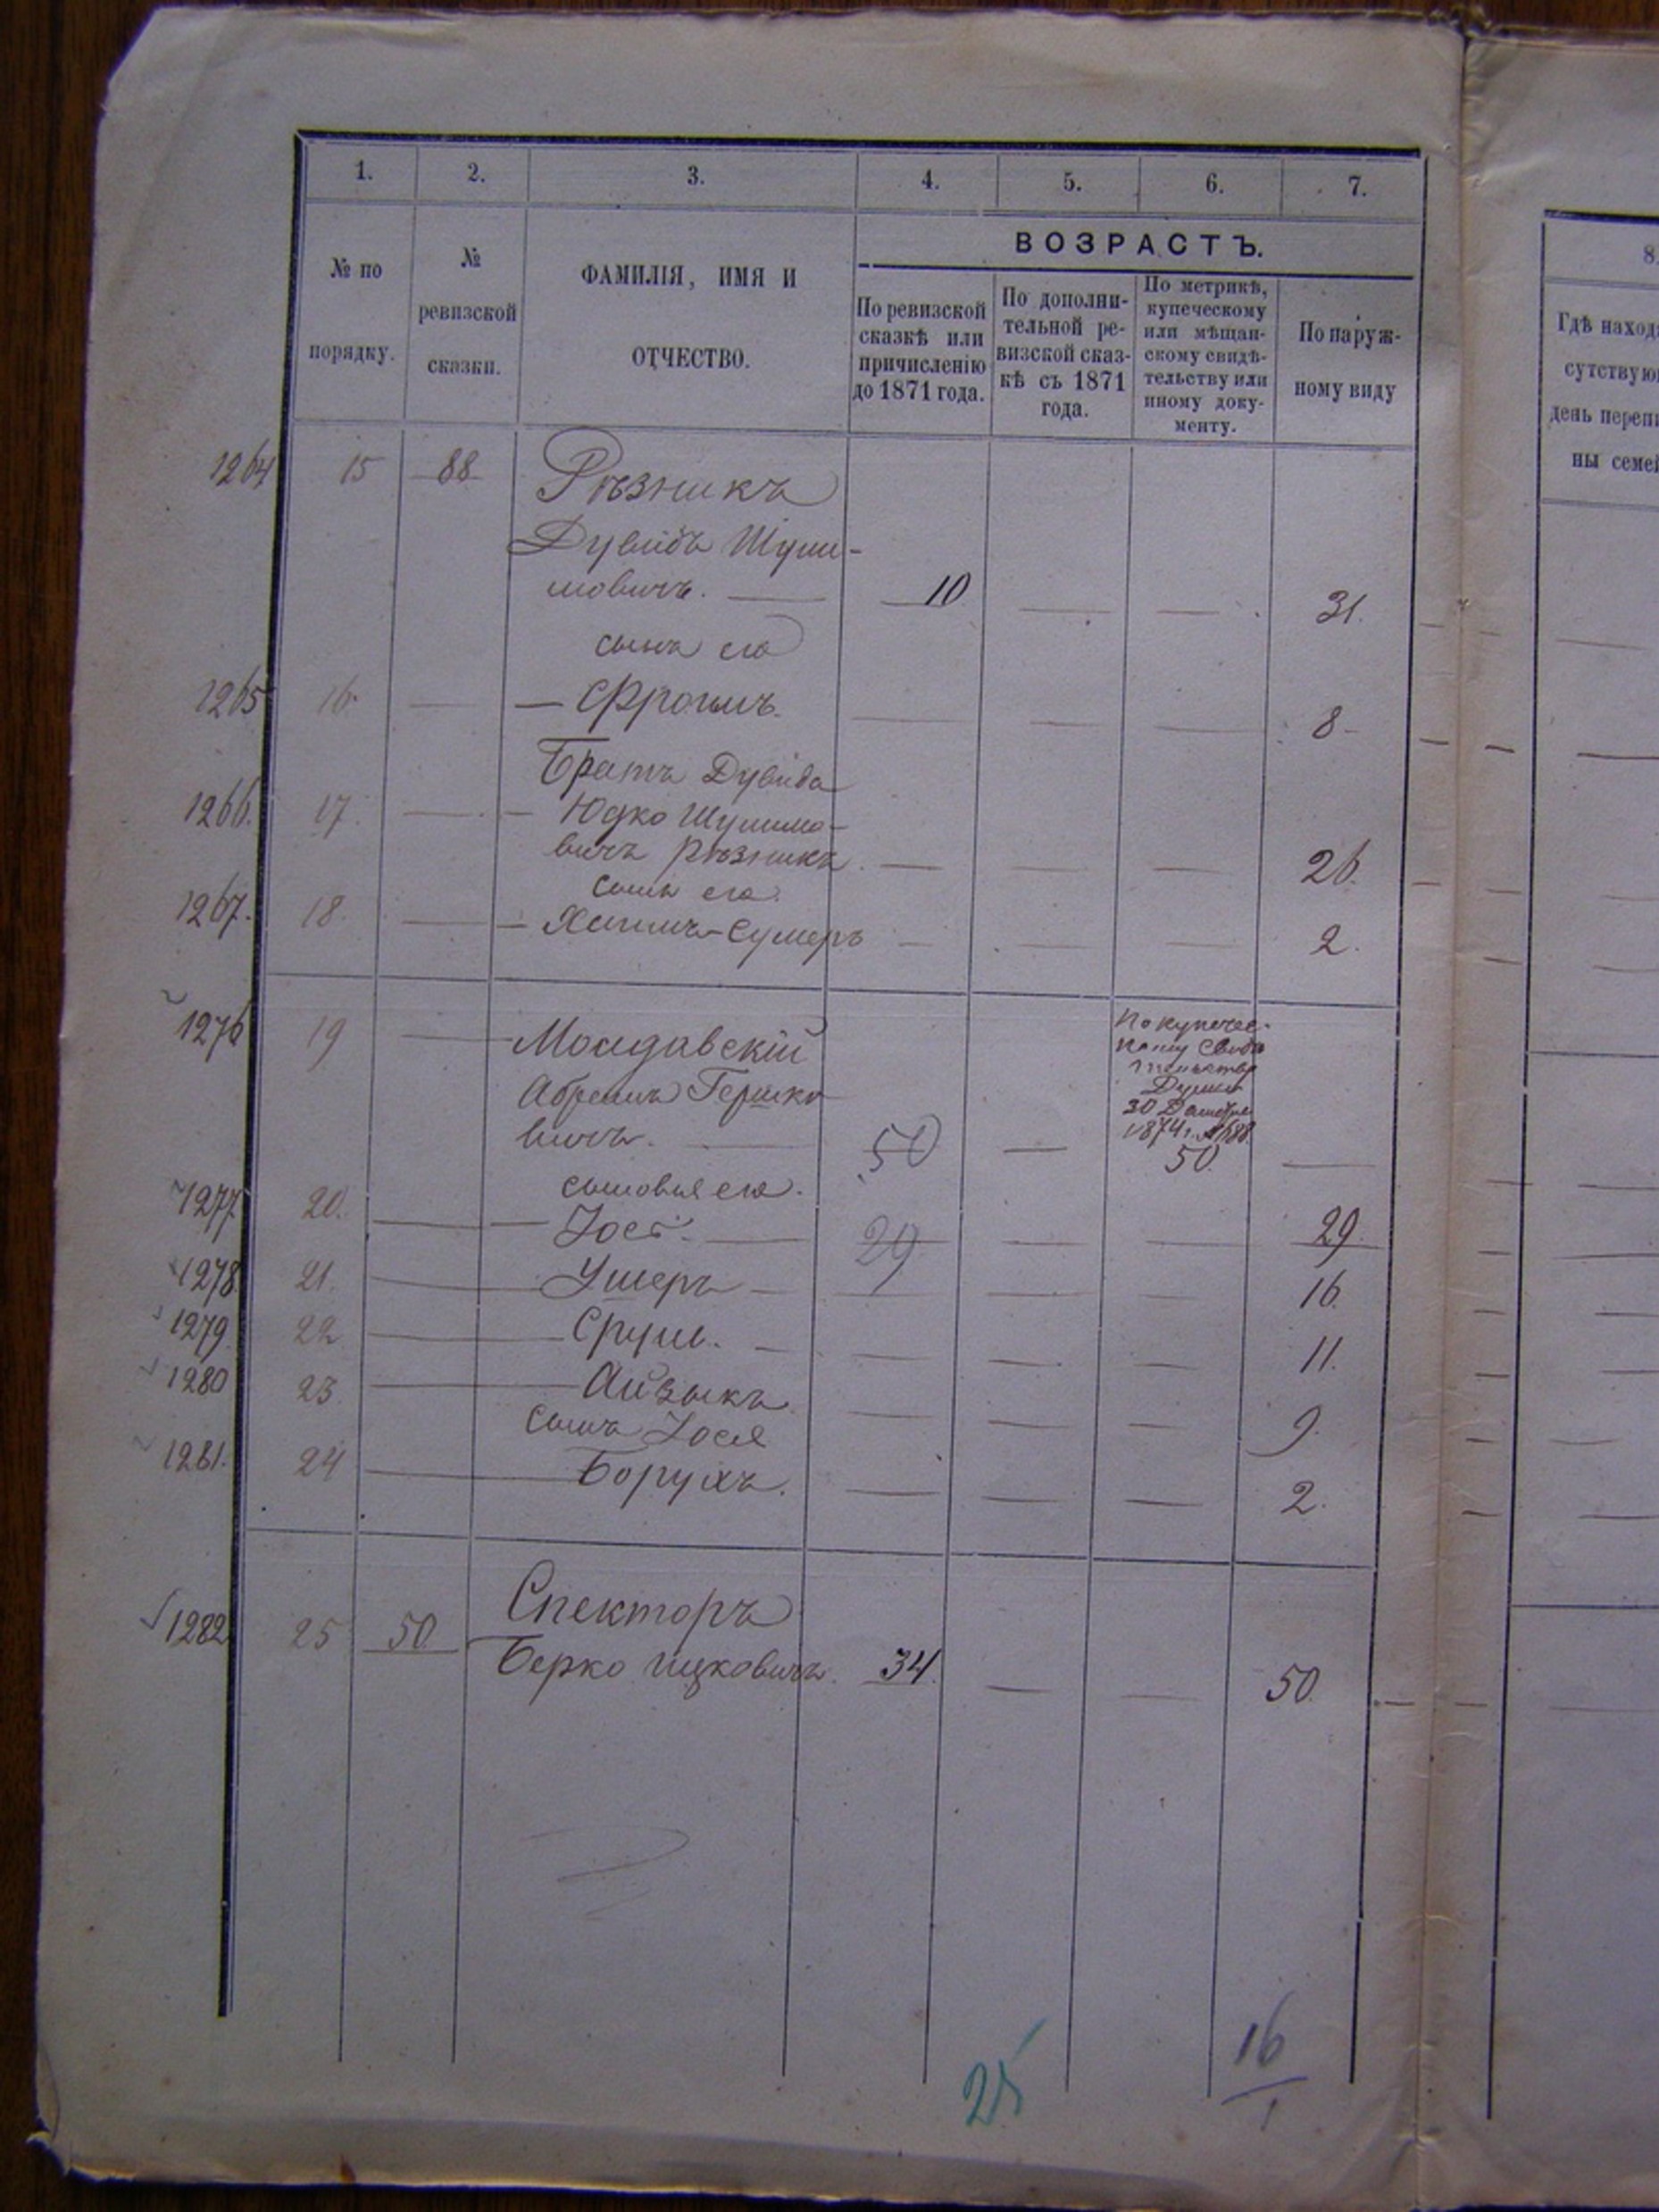 1. 2. 3. 4. 5. 6. 7.
№ по порядку.
№ ревизской сказки.
ФАМИЛІЯ, ИМЯ И
ОТЧЕСТВО.
ВОЗРАСТЪ.
По ревизской
сказкѣ или
причисленію
до 1871 года.
По дополни-
тельной ре-
визской сказ-
кѣ съ 1871
года.
По метрикѣ,
купеческому
или мѣщан-
скому свидѣ-
тельству или
иному доку-
менту.
По наруж-
ному виду
8.
Гдѣ наход
сутствую
день переп
ны семе
1264 15 88 Рѣзникъ
Дувидъ Шули-
мовичъ. — 10 — — 31.
сынъ его
1265 16. — — Фроимъ. — — — 8 —
Братъ Дувида
1266. 17. — — Юдко Шулимо-
вичъ Рѣзникъ. — — — 26.
сынъ его.
1267. 18. — — Хаимъ-Сумеръ — — — 2.
1276 19 — Молдавскій
Абрамъ Гершко
вичъ. — 50 — 50 —
По купечес-
кому свидѣ
тельству
Думы
30 1874 г. № 688.
сыновья его.
1277. 20. — — Іось. — 29 — — 29.
1278 21. — Ушеръ — — — — 16.
1279. 22 — Сруль. — — — — 11.
1280 23. — Айзыкъ. — — — 9.
сынъ Іося
1281. 24 — Борухъ. — — — 2.
1282 25 50. Спекторъ
Берко Ицковичъ. 34. — — 50.
25
16
1